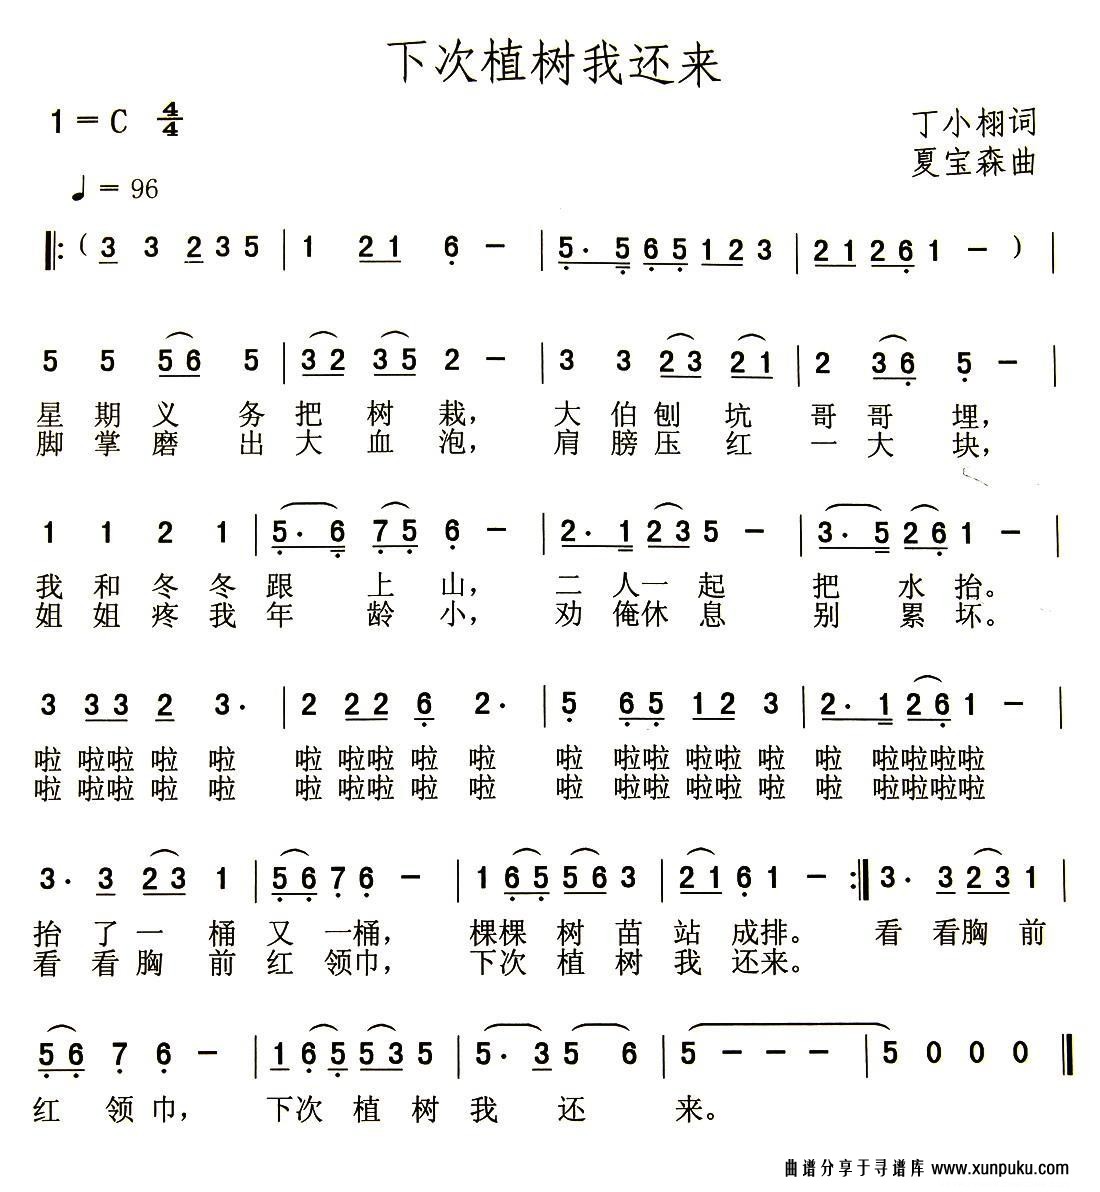 下次植树我还来
1 = C 4/4
丁小栩词
夏宝森曲
♩ = 96
‖: ( 3 3 2 3 5 | 1 2 1 6 － | 5. 5 6 5 1 2 3 | 2 1 2 6 1 － ) |
5 5 5 6 5 | 3 2 3 5 2 － | 3 3 2 3 2 1 | 2 3 6 5 － |
星 期 义 务 把 树 栽， 大 伯 刨 坑 哥 哥 埋，
脚 掌 磨 出 大 血 泡， 肩 膀 压 红 一 大 块，
1 1 2 1 | 5. 6 7 5 6 － | 2. 1 2 3 5 － | 3. 5 2 6 1 － |
我 和 冬 冬 跟 上 山， 二 人 一 起 把 水 抬。
姐 姐 疼 我 年 龄 小， 劝 俺 休 息 别 累 坏。
3 3 3 2 3. | 2 2 2 6 2. | 5 6 5 1 2 3 | 2. 1 2 6 1 － |
啦 啦啦 啦 啦 啦 啦啦 啦 啦 啦 啦啦 啦啦 啦 啦 啦啦啦啦
啦 啦啦 啦 啦 啦 啦啦 啦 啦 啦 啦啦 啦啦 啦 啦 啦啦啦啦
3. 3 2 3 1 | 5 6 7 6 － | 1 6 5 5 6 3 | 2 1 6 1 － :‖ 3. 3 2 3 1 |
抬 了 一 桶 又 一 桶， 棵棵 树 苗 站 成排。 看 看胸 前
看 看 胸 前 红 领巾， 下次 植 树 我 还来。
5 6 7 6 － | 1 6 5 5 3 5 | 5. 3 5 6 | 5 － － － | 5 0 0 0 ‖
红 领 巾， 下次 植 树 我 还 来。
曲谱分享于寻谱库 www.xunpuku.com